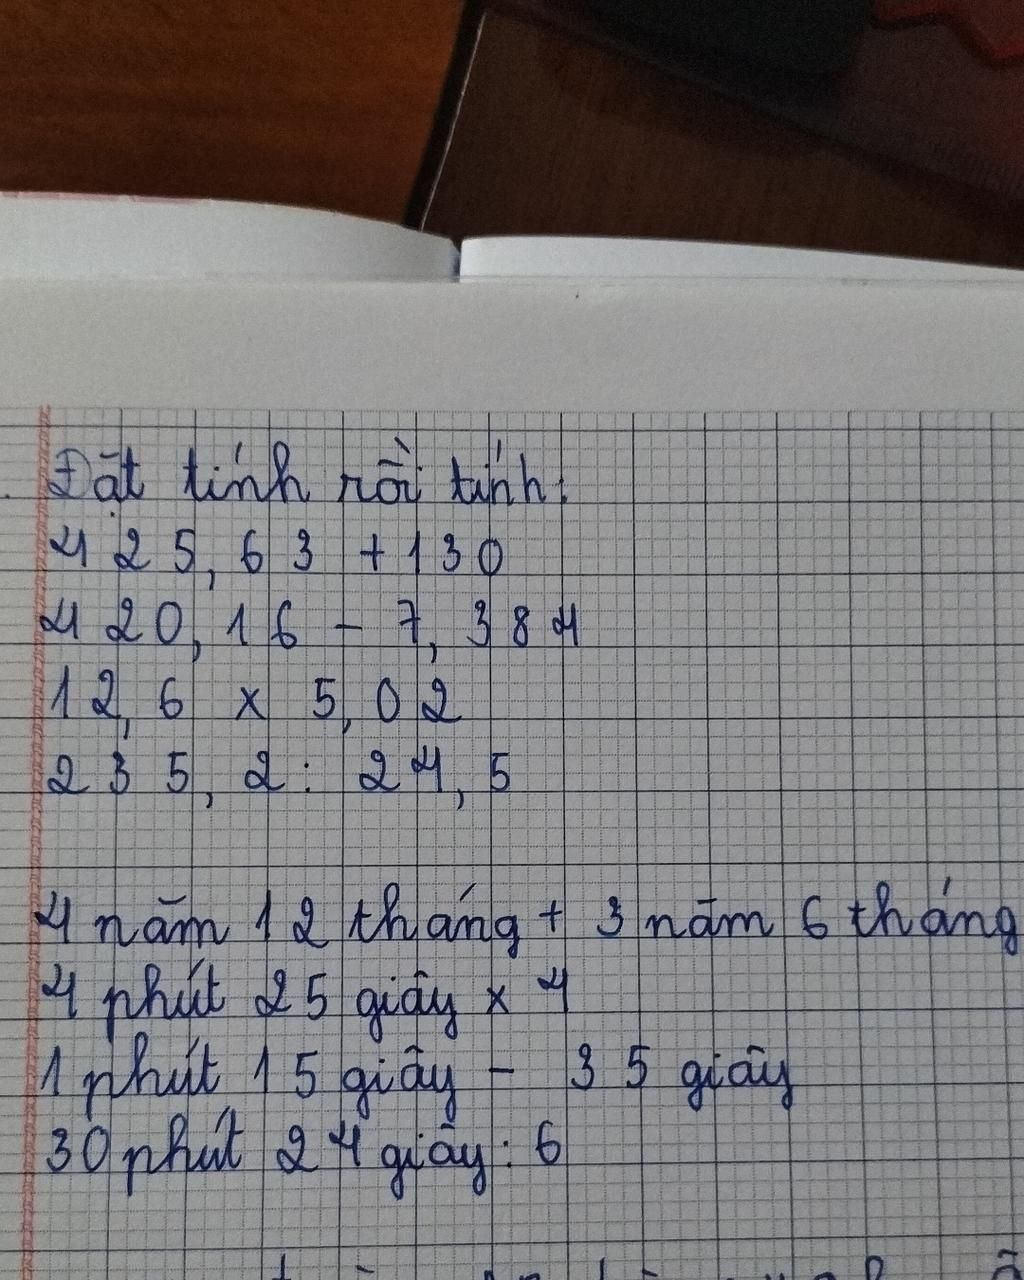 Đặt tính rồi tính:
425,63 + 130
420,16 - 7,384
12,6 x 5,02
235,2 : 24,5
4 năm 12 tháng + 3 năm 6 tháng
4 phút 25 giây x 4
1 phút 15 giây - 35 giây
30 phút 24 giây : 6